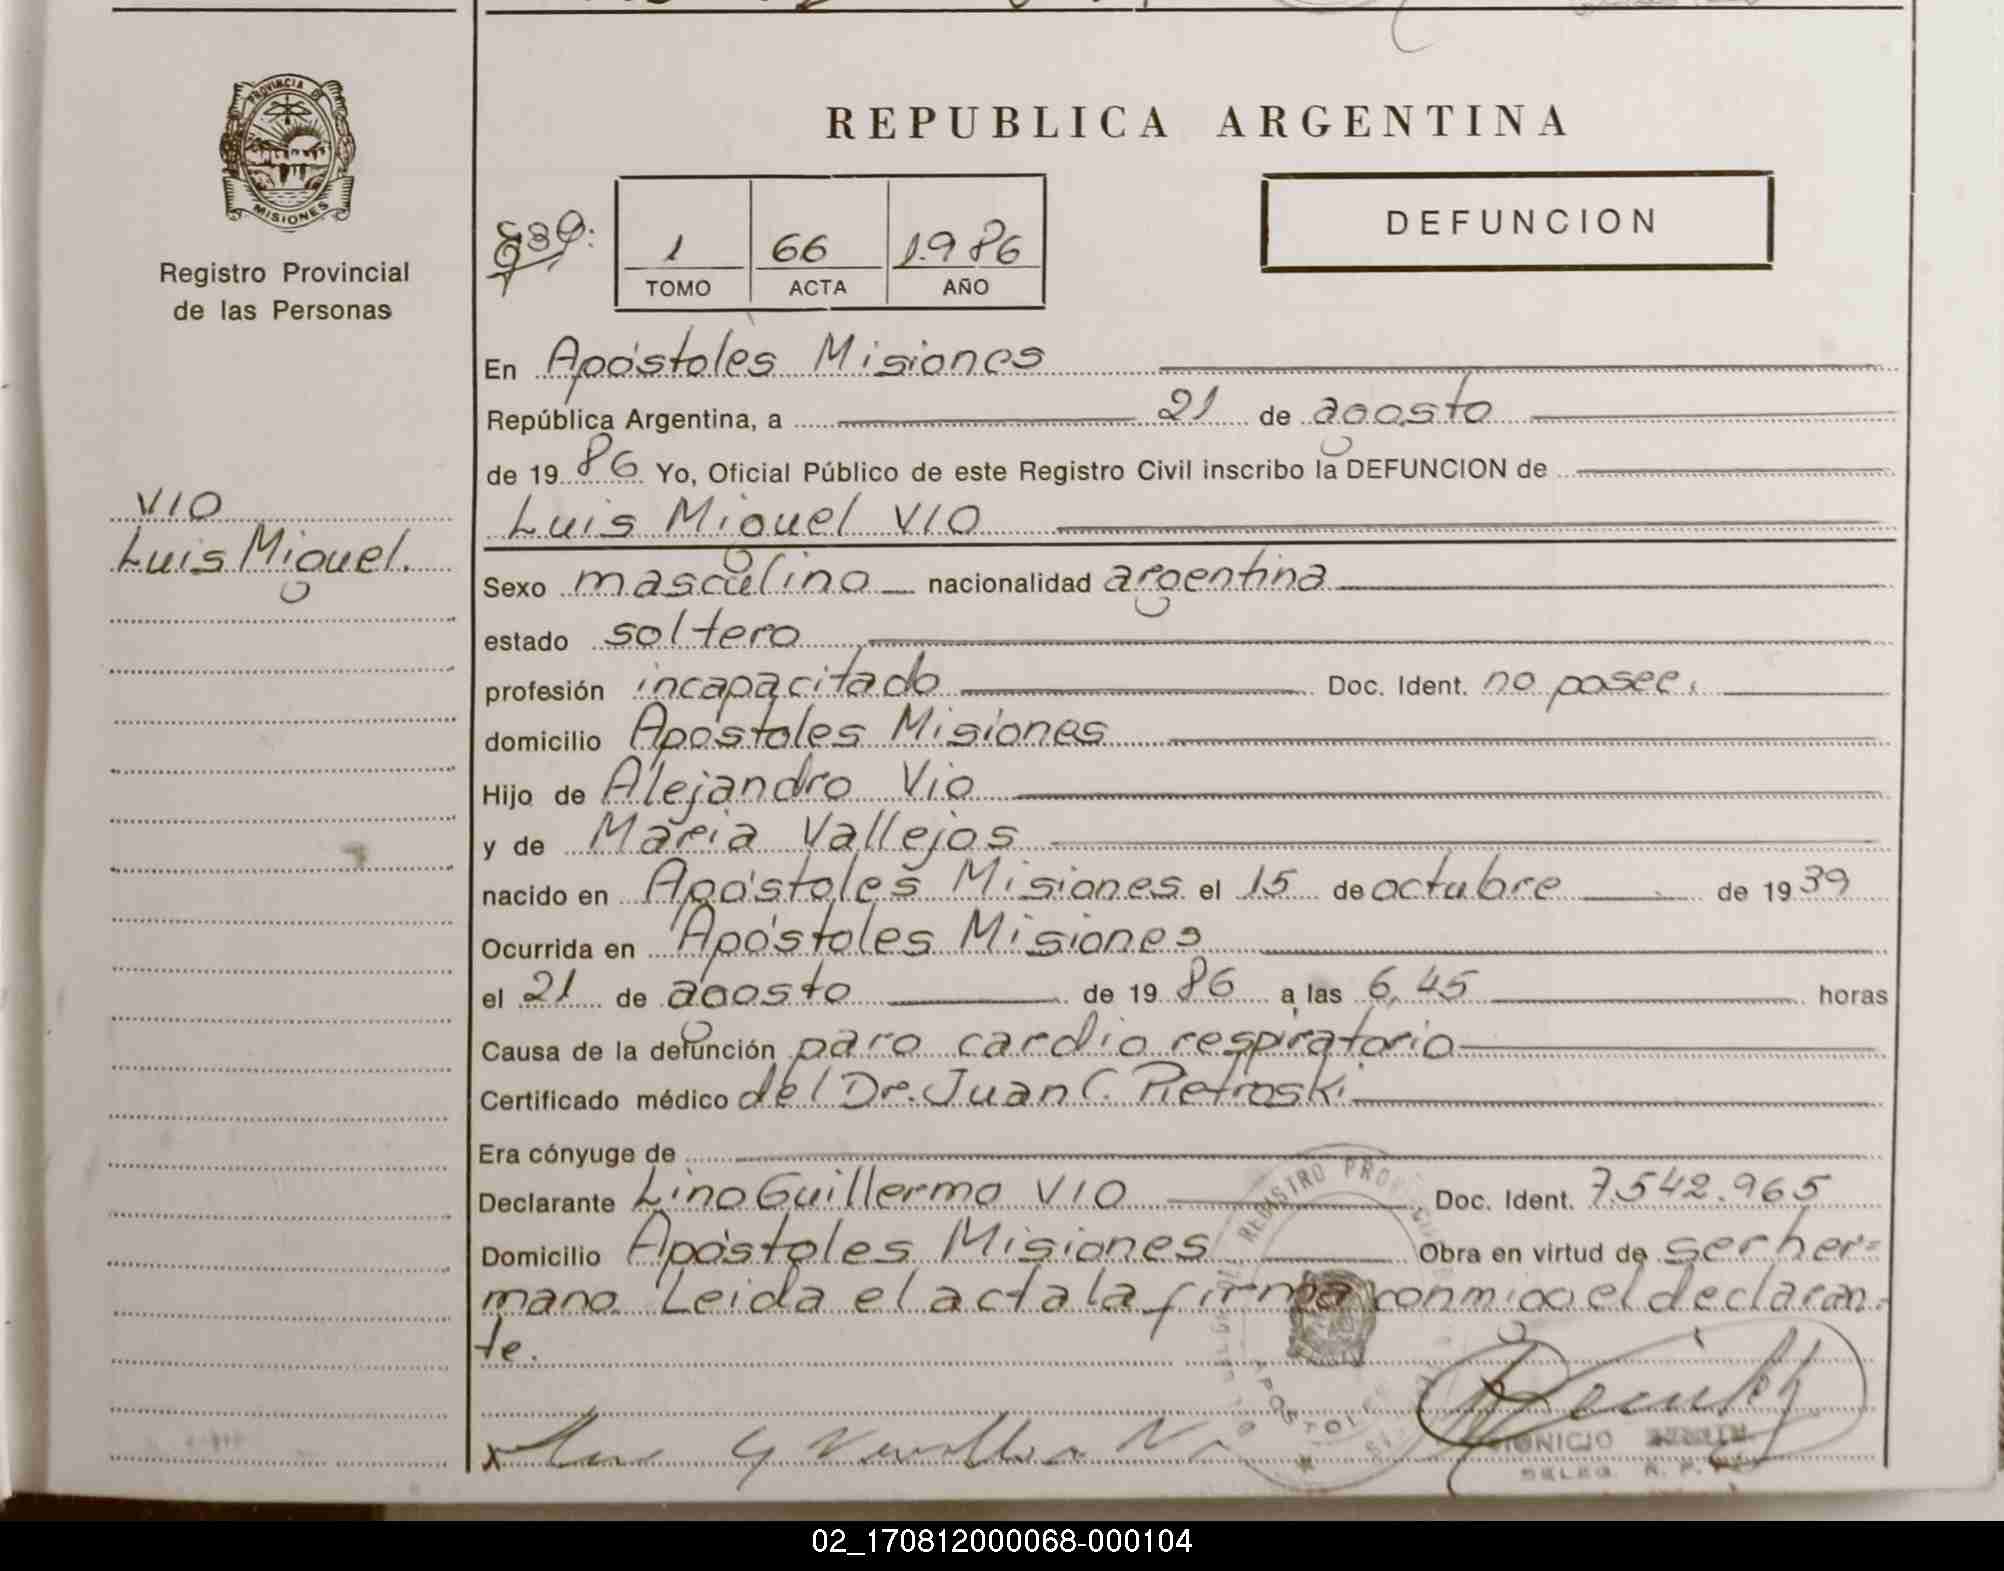 PROVINCIA DE
MISIONES
Registro Provincial
de las Personas
VIO
Luis Miguel.
REPUBLICA ARGENTINA
1 66 1.986
TOMO ACTA AÑO
DEFUNCION
En Apóstoles Misiones
República Argentina, a 21 de agosto
de 19 86 Yo, Oficial Público de este Registro Civil inscribo la DEFUNCION de
Luis Miguel VIO
Sexo masculino nacionalidad argentina
estado soltero
profesión incapacitado Doc. Ident. no posee.
domicilio Apóstoles Misiones
Hijo de Alejandro Vio
y de Maria Vallejos
nacido en Apóstoles Misiones el 15 de octubre de 19 39
Ocurrida en Apóstoles Misiones
el 21 de agosto de 19 86 a las 6,45 horas
Causa de la defunción paro cardio respiratorio
Certificado médico del Dr. Juan C. Pietroski
Era cónyuge de
Declarante Lino Guillermo VIO Doc. Ident. 7.542.965
Domicilio Apóstoles Misiones Obra en virtud de ser her=
mano. Leida el acta la firma conmigo el declaran=
te.
REGISTRO PROVINCIAL
APOSTOLES
DELEG. R. P.
02_170812000068-000104